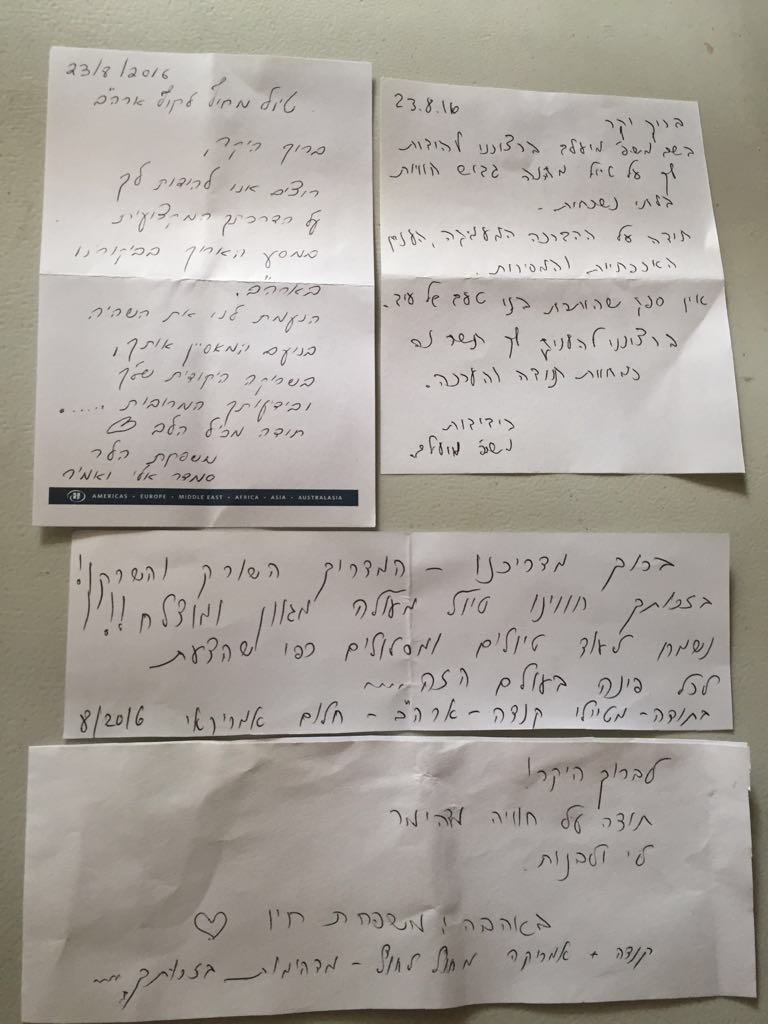 23/8/2016
טיול מחוף לחוף ארה"ב
ברוך היקר,
רוצים אנו להודות לך
על הדרכתך המקצועית
במסע הארוך בביקורנו
בארה"ב.
הנעמת לנו את השהיה
בנועם המאפיין אותך,
בשריקה היחודית שלך
ובידיעותיך המרובות......
תודה מכל הלב ♡
משפחת הלר
סמדר אלי ואמיר
AMERICAS · EUROPE · MIDDLE EAST · AFRICA · ASIA · AUSTRALASIA
23.8.16
ברוך יקר
בשם משפ' מועלם ברצוננו להודות
לך על טיול מהנה גדוש חוויות
בלתי נשכחות.
תודה על ההדרכה המעמיקה, הענין
האכפתיות והמסירות.
אין ספק שהותרת בנו טעם של עוד.
ברצוננו להעניק לך תשר זה
כמחוות תודה והערכה.
בידידות
משפ' מועלם.
ברוך מדריכנו - המדריך השורק והשרקן!
בזכותך חווינו טיול מעולה מגוון ומוצלח!!!
נשמח לעוד טיולים ומסלולים כפי שהצעת
לכל פינה בעולם הזה.....
בתודה - מטיילי קנדה - ארה"ב - חלום אמריקאי 8/2016
לברוך היקר!
תודה על חוויה מדהימה
לי ולבנות.
באהבה, משפחת חיו ♡
קנדה + אמריקה מחוף לחוף - מדהימות בזכותך